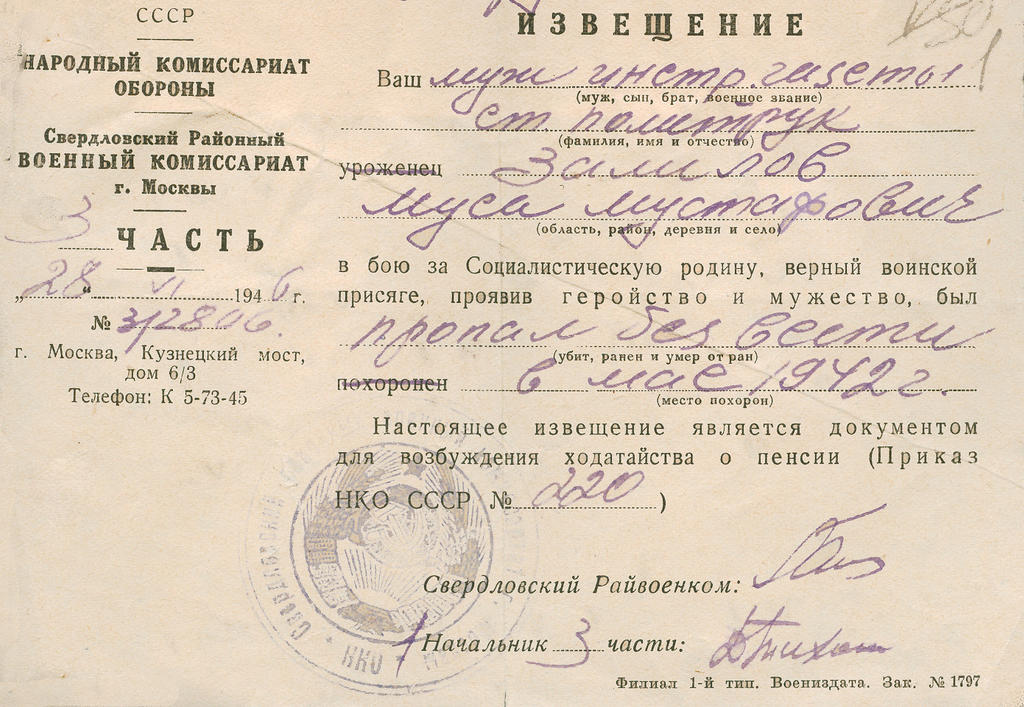 СССР
НАРОДНЫЙ КОМИССАРИАТ
ОБОРОНЫ
Свердловский Районный
ВОЕННЫЙ КОМИССАРИАТ
г. Москвы
3 ЧАСТЬ
„28“ VI 1946 г.
№ 3/2806.
г. Москва, Кузнецкий мост,
дом 6/3
Телефон: К 5-73-45
ИЗВЕЩЕНИЕ
Ваш муж инстр. газеты
(муж, сын, брат, военное звание)
ст политрук
(фамилия, имя и отчество)
уроженец Залилов
Муса Мустафович
(область, район, деревня и село)
в бою за Социалистическую родину, верный воинской
присяге, проявив геройство и мужество, был
пропал без вести
(убит, ранен и умер от ран)
похоронен в мае 1942 г.
(место похорон)
Настоящее извещение является документом
для возбуждения ходатайства о пенсии (Приказ
НКО СССР № 220 )
Свердловский Райвоенком:
Начальник 3 части:
НКО
Филиал 1-й тип. Воениздата. Зак. № 1797